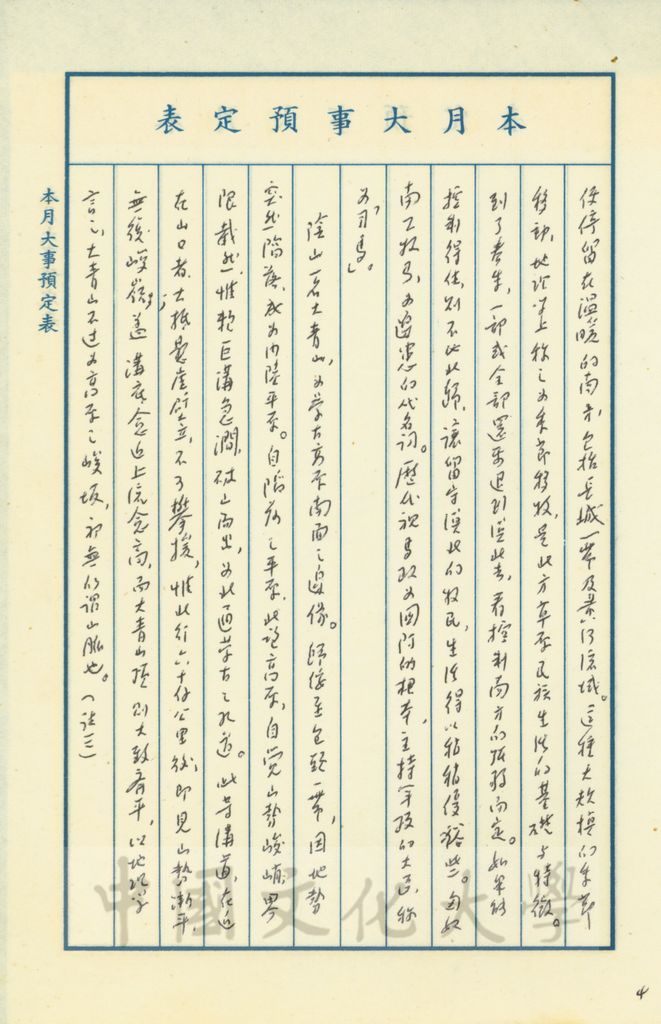 本月大事預定表
便停留在溫暖的南方，包括長城一帶及黃河流域。這種大規模的季節
移動，地理學上稱之為季節移牧，是北方草原民族生活的基礎與特徵。
到了春生，一部或全部還要退到漠北去，看控制南方的張弛而定。如果能
控制得住，則不必北歸，讓留守漠北的牧民，生活得以稍稍優裕些。匈奴
南下牧馬，為邊患的代名詞。歷代視馬政為國防的根本，主持軍政的大臣，稱
為「司馬」。
陰山一名大青山，為蒙古高原南面之邊緣。歸綏至包頭一帶，因地勢
突然陷落，成為內陸平原。自陷落之平原，北望高原，自覺山勢峻峭，界
限截然，惟賴巨溝急澗，破山而出，為北通蒙古之孔道。此等溝道，在近
在山口者，大抵懸崖壁立，不可攀援，惟北行六十仟公里後，即見山勢漸平，
無復峻嶺；蓋溝底愈近上流愈高，而大青山頂則大致齊平，以地理學
言之，大青山不过為高原之峻坂，初無所謂山脈也。（註三）
本月大事預定表
中國文化大學
4